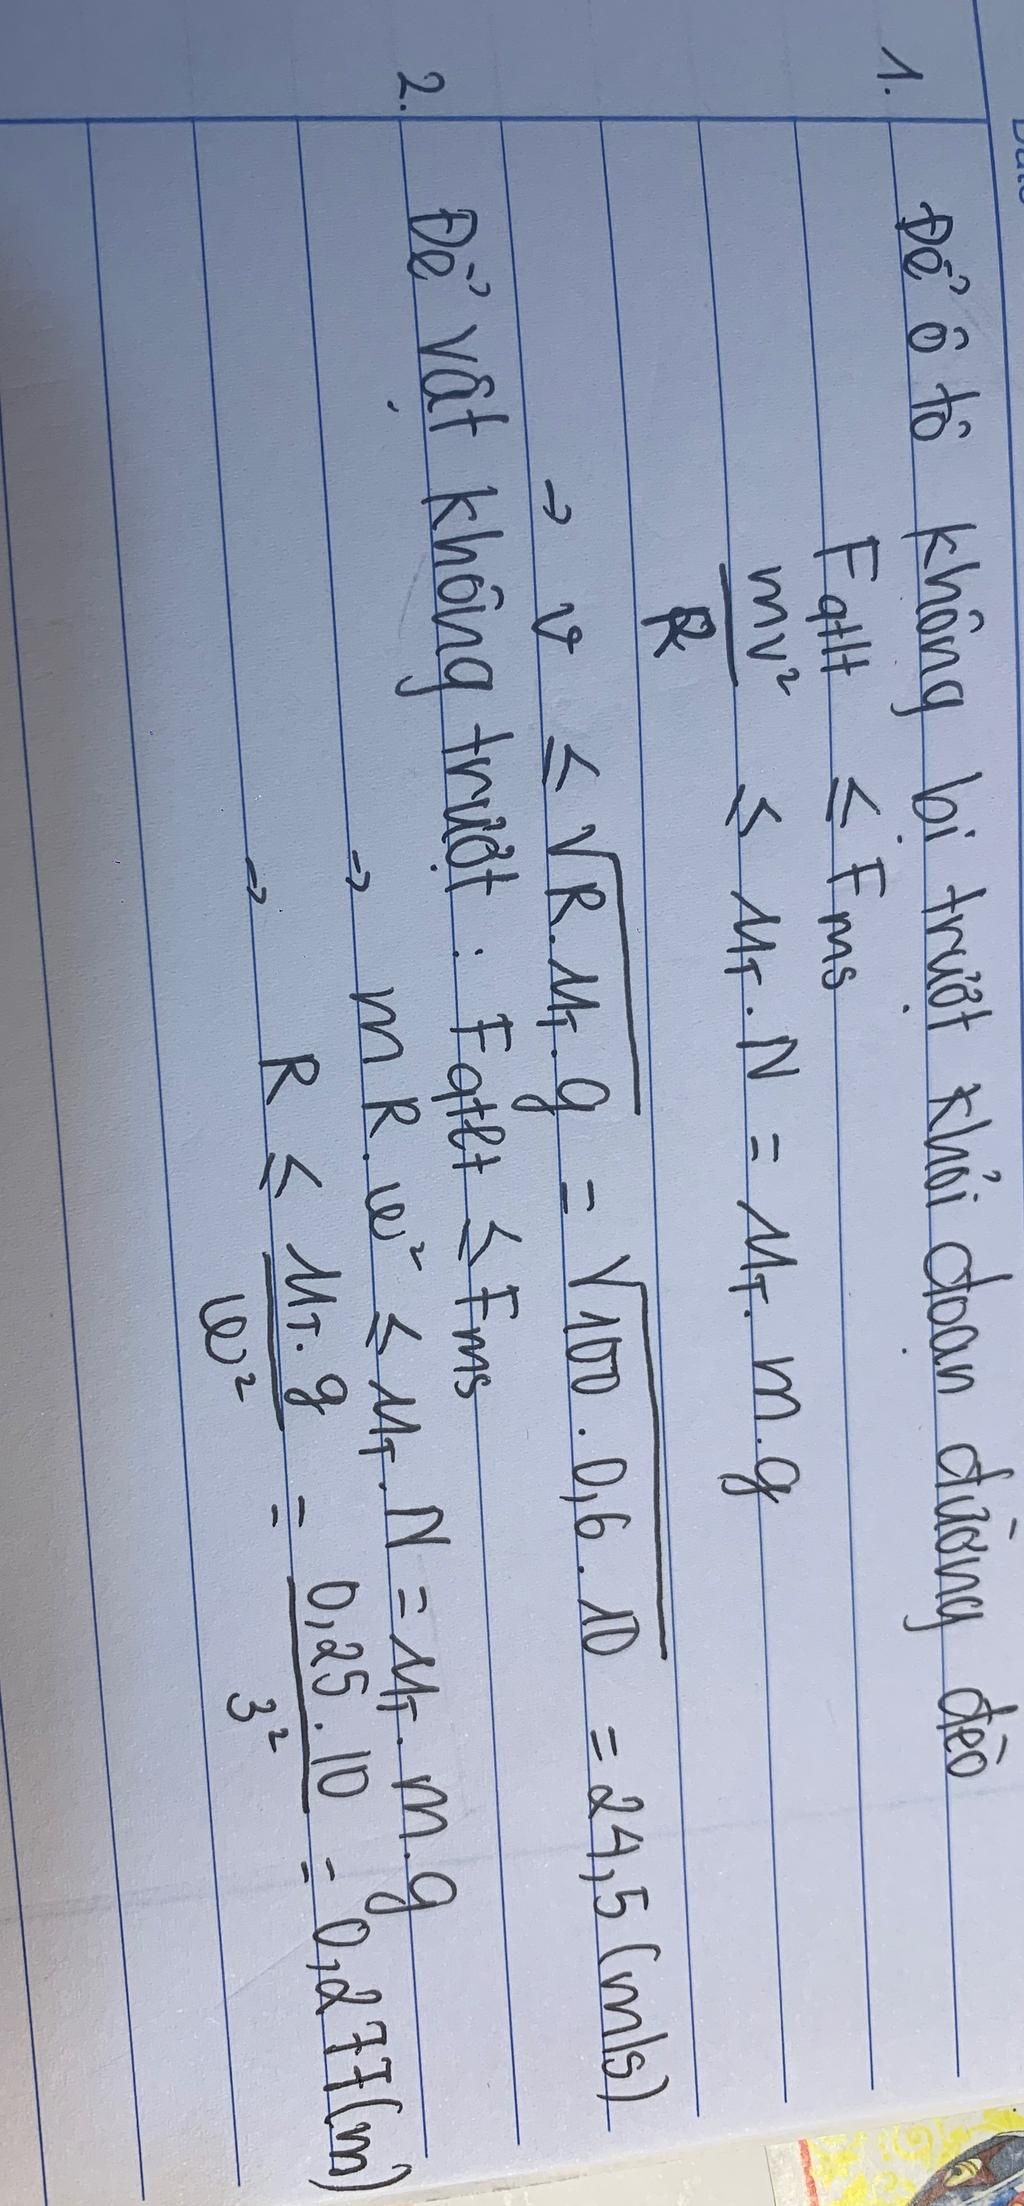 1. Để ô tô không bị trượt khỏi đoạn đường đèo
Fqtlt ≤ Fms
mv²/R ≤ μT.N = μT.m.g
→ v ≤ √R.μT.g = √100.0,6.10 = 24,5 (m/s)
2. Để vật không trượt : Fqtlt ≤ Fms
→ mR.ω² ≤ μT.N = μT.m.g
→ R ≤ μT.g/ω² = 0,25.10/3² = 0,277(m)